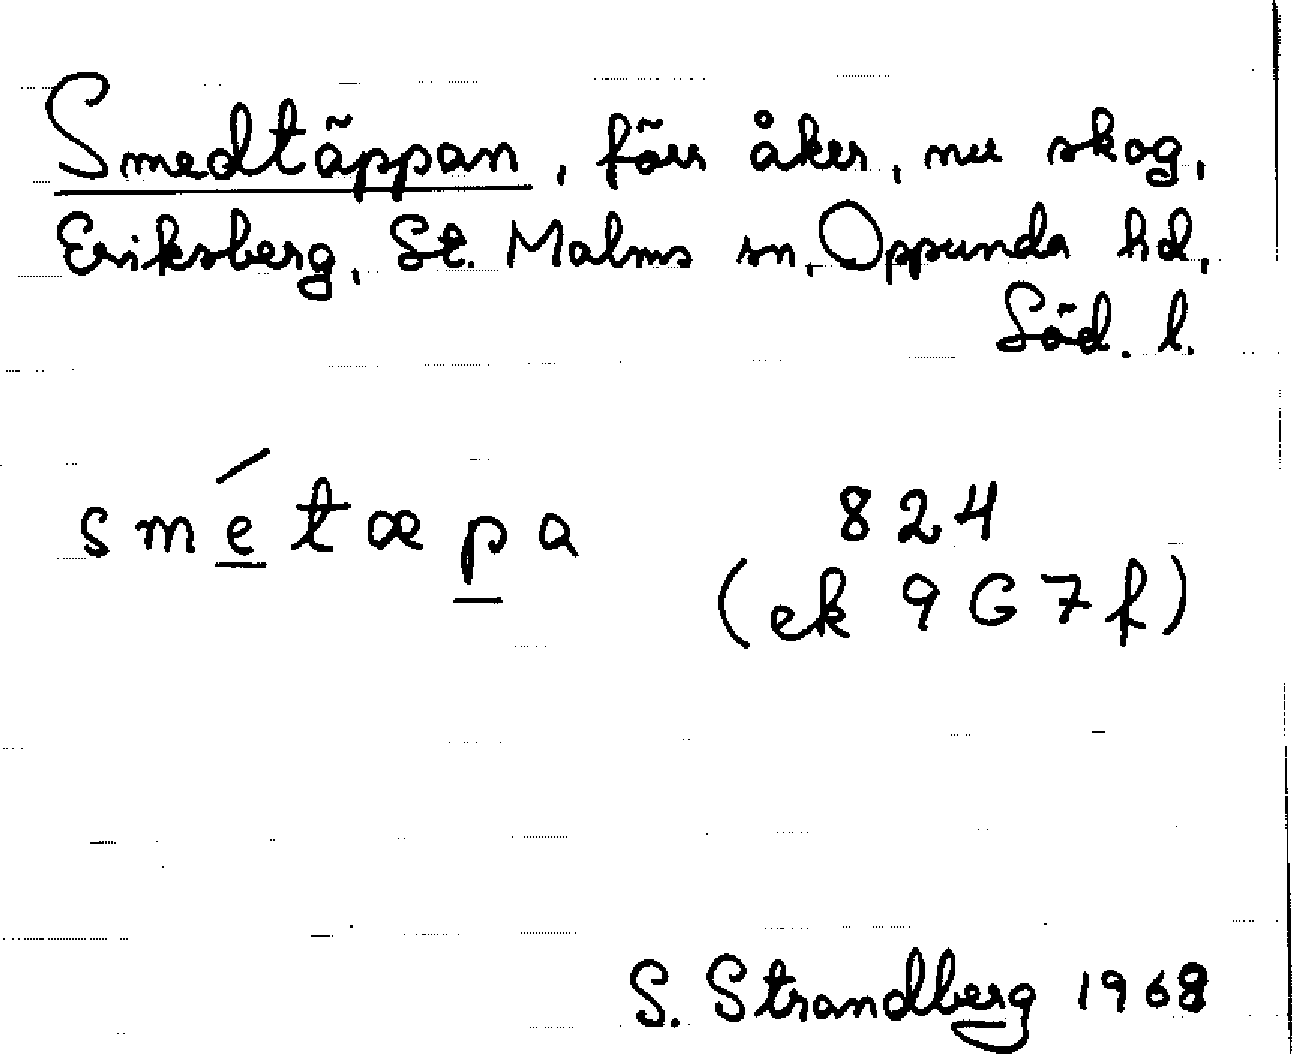 Smedtäppan, förr åker, nu skog,
Eriksberg, St. Malms sn, Oppunda hd,
Söd. l.
smétæpa 824
(ek 9G7f)
S. Strandberg 1968